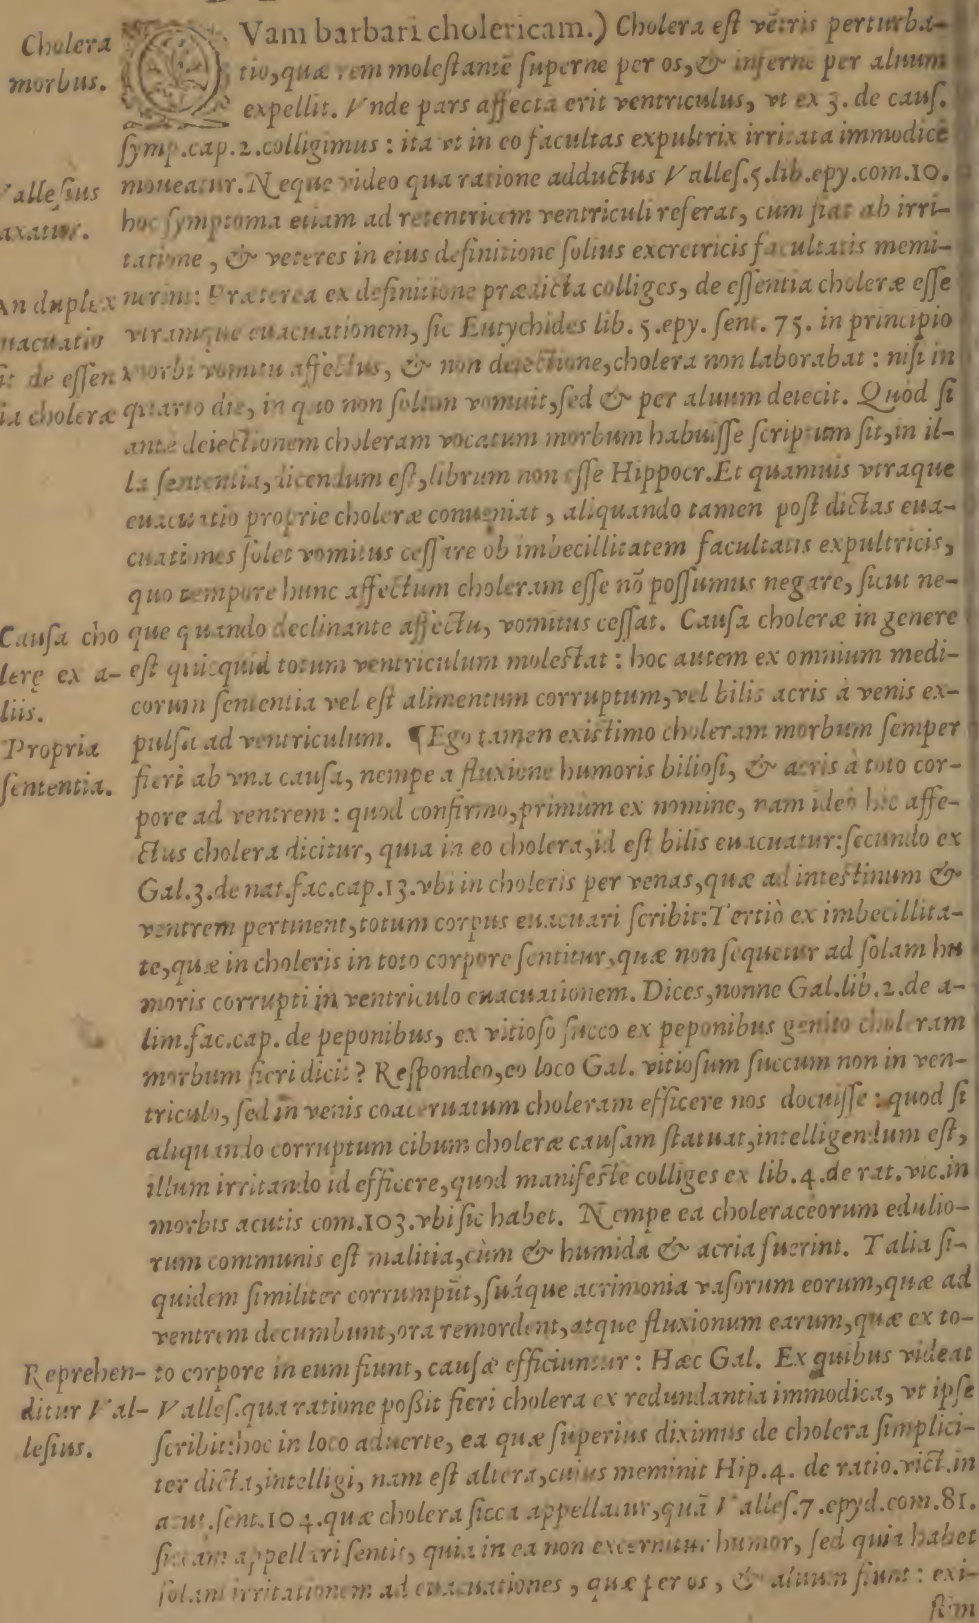 Cholera
morbus.
QVam barbari cholericam.) Cholera eſt vẽtris perturba-
tio, quæ rem moleſtantẽ ſuperne per os, & inferne per aluum
expellit. Vnde pars affecta erit ventriculus, vt ex 3. de cauſ.
ſymp.cap.2.colligimus : ita vt in eo facultas expultrix irritata immodicè
Valleſius
taxatur.
moueatur. Neque video qua ratione adductus Valleſ.5.lib.epy.com.10.
hoc ſymptoma etiam ad retentricem ventriculi referat, cum fiat ab irri-
tatione, & veteres in eius definitione ſolius excretricis facultatis memi-
An duplex
euacuatio
ſit de eſſen
tia choleræ
nerint: Præterea ex definitione prædicta colliges, de eſſentia choleræ eſſe
vtramque euacuationem, ſic Eutychides lib. 5.epy. ſent. 75. in principio
morbi vomitu affectus, & non deiectione, cholera non laborabat : niſi in
quarto die, in quo non ſolum vomuit, ſed & per aluum deiecit. Quòd ſi
ante deiectionem choleram vocatum morbum habuiſſe ſcriptum ſit, in il-
la ſententia, dicendum eſt, librum non eſſe Hippocr. Et quamuis vtraque
euacuatio proprie choleræ conueniat, aliquando tamen poſt dictas eua-
cuationes ſolet vomitus ceſſare ob imbecillitatem facultatis expultricis,
quo tempore hunc affectum choleram eſſe nõ poſſumus negare, ſicut ne-
Cauſa cho
lerę ex a-
liis.
que quando declinante affectu, vomitus ceſſat. Cauſa choleræ in genere
eſt quicquid totum ventriculum moleſtat : hoc autem ex omnium medi-
corum ſententia vel eſt alimentum corruptum, vel bilis acris à venis ex-
Propria
ſententia.
pulſa ad ventriculum. ¶Ego tamen exiſtimo choleram morbum ſemper
fieri ab vna cauſa, nempe a fluxione humoris bilioſi, & acris à toto cor-
pore ad ventrem : quod confirmo, primùm ex nomine, nam ideò hic affe-
ctus cholera dicitur, quia in eo cholera, id eſt bilis euacuatur: ſecundo ex
Gal.3.de nat.fac.cap.13.vbi in choleris per venas, quæ ad inteſtinum &
ventrem pertinent, totum corpus euacuari ſcribit: Tertiò ex imbecillita-
te, quæ in choleris in toto corpore ſentitur, quæ non ſequetur ad ſolam hu
moris corrupti in ventriculo euacuationem. Dices, nonne Gal.lib.2.de a-
lim.fac.cap. de peponibus, ex vitioſo ſucco ex peponibus genito choleram
morbum fieri dicit ? Reſpondeo, eo loco Gal. vitioſum ſuccum non in ven-
triculo, ſed in venis coaceruatum choleram efficere nos docuiſſe : quod ſi
aliquando corruptum cibum choleræ cauſam ſtatuat, intelligendum eſt,
illum irritando id efficere, quod manifeſtè colliges ex lib.4.de rat.vic.in
morbis acutis com.103.vbi ſic habet. Nempe ea choleraceorum edulio-
rum communis eſt malitia, cùm & humida & acria fuerint. Talia ſi-
quidem ſimiliter corrumpũt, ſuáque acrimonia vaſorum eorum, quæ ad
ventrem decumbunt, ora remordent, atque fluxionum earum, quæ ex to-
Reprehen-
ditur Val-
leſius.
to corpore in eum fiunt, cauſæ efficiuntur : Hæc Gal. Ex quibus videat
Valleſ.qua ratione poßit fieri cholera ex redundantia immodica, vt ipſe
ſcribit: hoc in loco aduerte, ea quæ ſuperius diximus de cholera ſimplici-
ter dicta, intelligi, nam eſt altera, cuius meminit Hip.4. de ratio.vict.in
acut.ſent.104.quæ cholera ſicca appellatur, quã Valleſ.7.epyd.com.81.
ſiccam appellari ſentit, quia in ea non excernitur humor, ſed quia habet
ſolam irritationem ad euacuationes, quæ per os, & aluum fiunt : exi-
ſtim